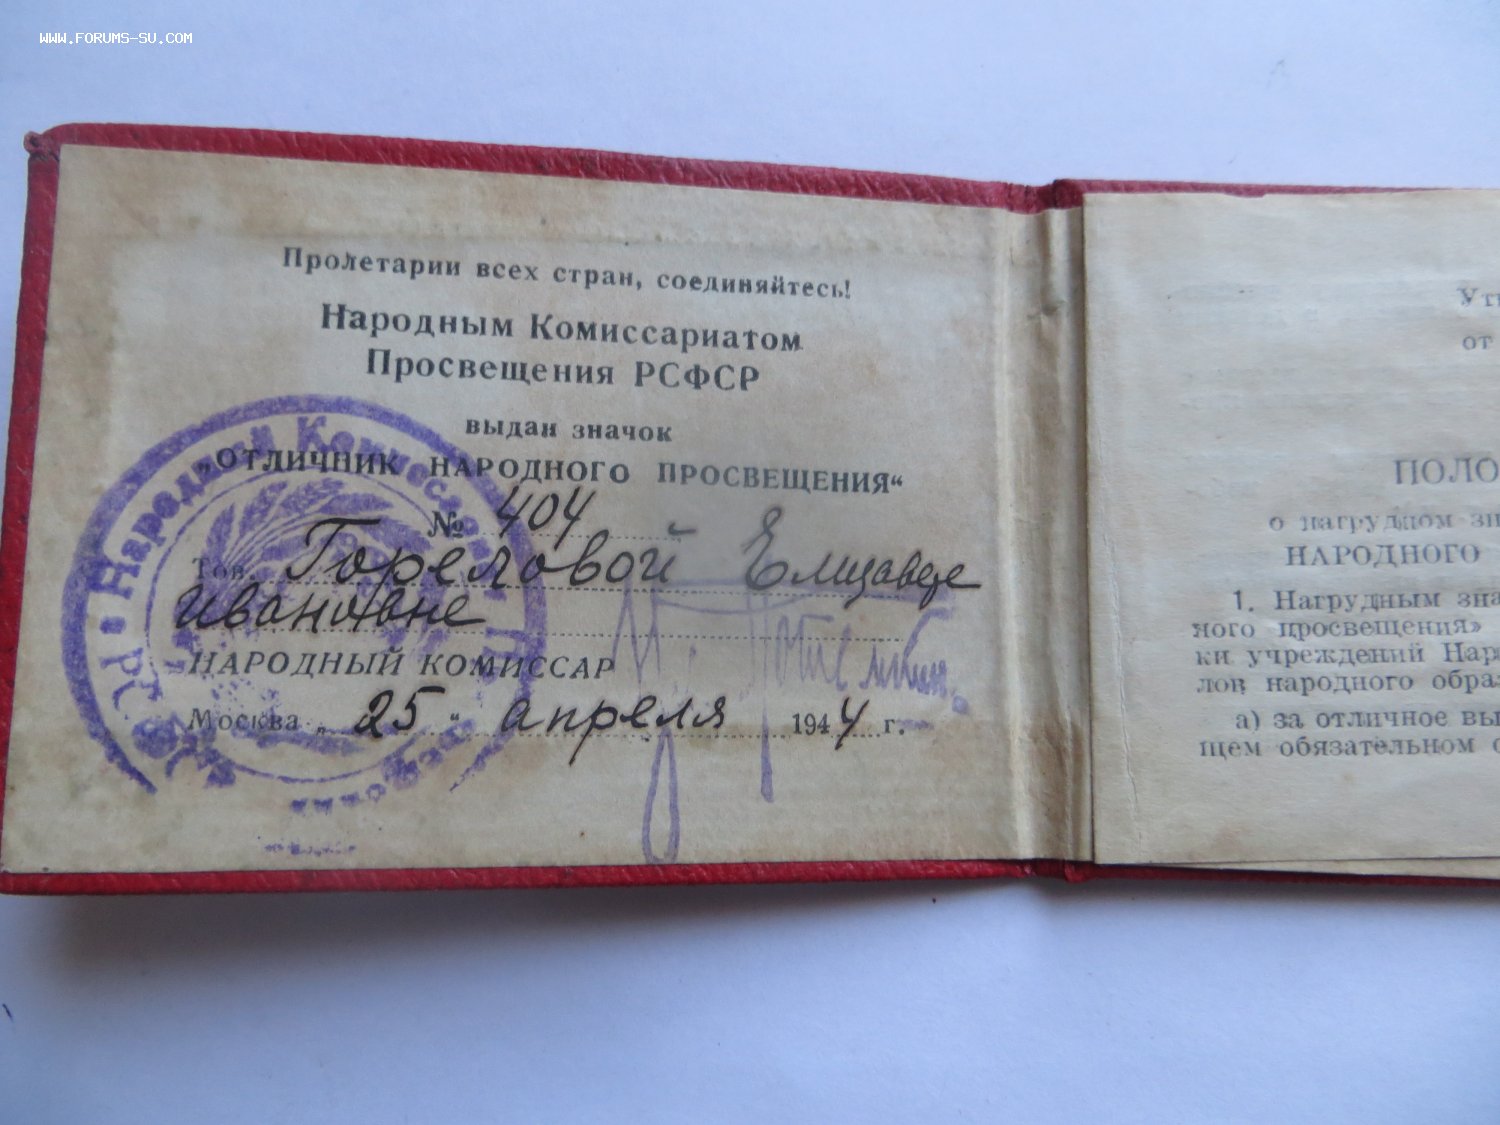 WWW.FORUMS-SU.COM
Пролетарии всех стран, соединяйтесь!
Народным Комиссариатом
Просвещения РСФСР
выдан значок
„ОТЛИЧНИК НАРОДНОГО ПРОСВЕЩЕНИЯ“
№ 404
Тов. Гореловой Елизавете
Ивановне
НАРОДНЫЙ КОМИССАР
Москва „ 25 “ апреля 1944 г.
Народный Комиссариат
от
ПОЛО
о нагрудном зн
НАРОДНОГО
1. Нагрудным зна
ного просвещения»
ки учреждений Нар
лов народного образ
а) за отличное вы
щем обязательном о